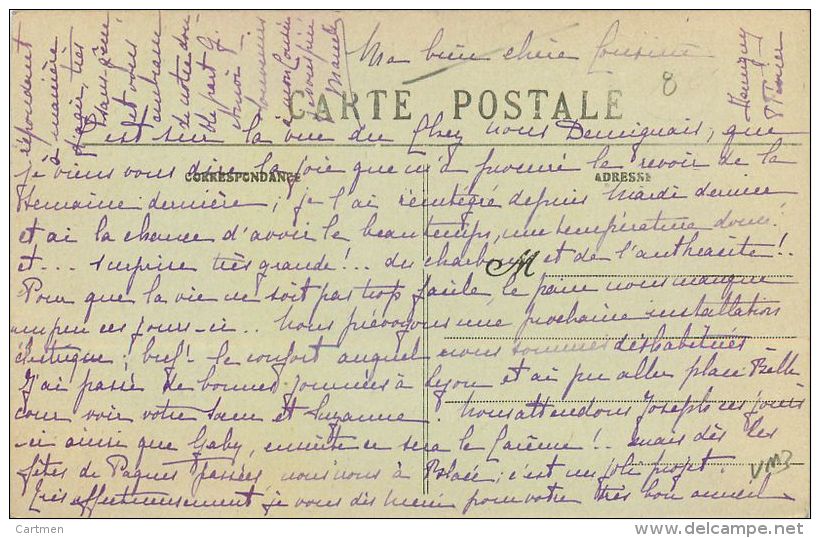 Ma bien chère Cousine
8 Février
8
CARTE POSTALE
C'est sur la vue du Chez nous Demiguais, que
CORRESPONDANCE
ADRESSE
je viens vous dire la joie que m'a procuré le revoir de la
semaine dernière; je l'ai réintégré depuis Mardi dernier
et ai la chance d'avoir le beau temps, une température douce!
et... surprise très grande!.. du charbon et de l'anthracite!..
M
Pour que la vie ne soit pas trop facile, le pain nous manque
un peu ces jours-ci.. Nous prévoyons une prochaine installation
électrique; bref! le confort auquel nous sommes déshabitués
J'ai passé de bonnes journées à Lyon et ai pu aller place Belle
cour voir votre sœur et Suzanne. Nous attendons Joseph ces jours
-ci ainsi que Gaby, ensuite ce sera le Carême!.. mais dès les
fêtes de Pâques passées nous irons à ; c'est un joli projet.
Très affectueusement je vous dis merci pour votre très bon accueil
répondant
à manière
d'agir, très
sans-gêne
et vous
embrasse
de notre
part
souvenirs
à mon Cousin
Marcelle
VM3
Cartmen
delcampe.net